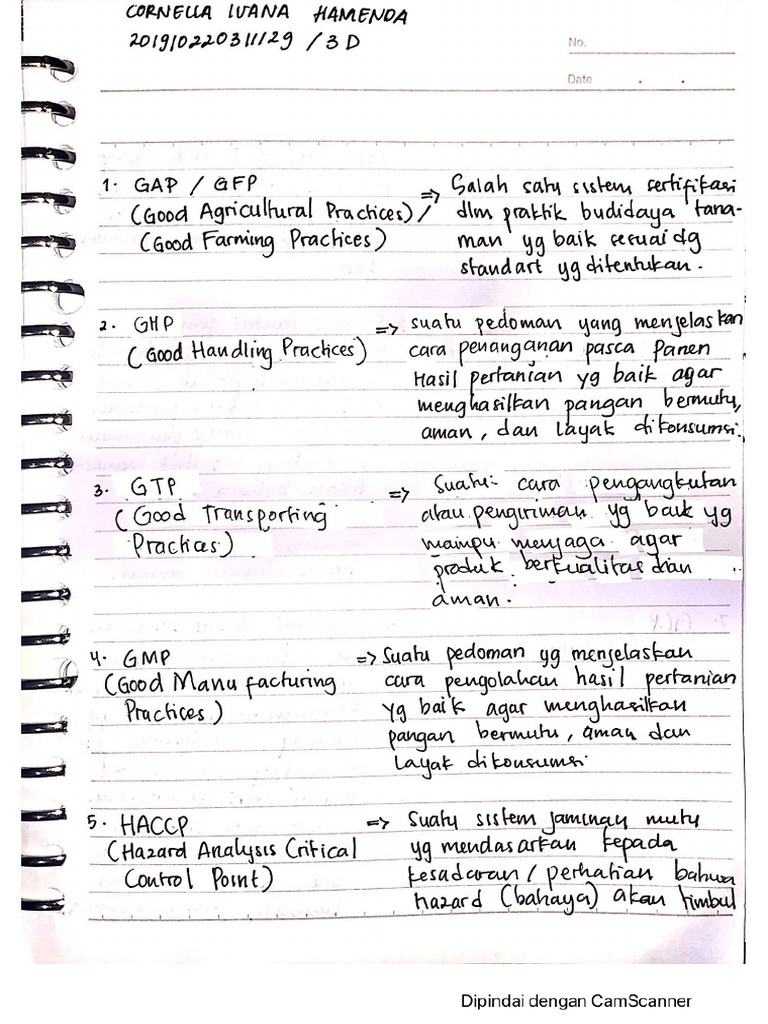 CORNELLA IVANA HAMENDA
201910220311129 / 3D
No.
Date
1. GAP / GFP
(Good Agricultural Practices) /
(Good Farming Practices)
=> Salah satu sistem sertifikasi
dlm praktik budidaya tana-
man yg baik sesuai dg
standart yg ditentukan.
2. GHP
(Good Handling Practices)
=> suatu pedoman yang menjelaskan
cara penanganan pasca Panen
Hasil pertanian yg baik agar
menghasilkan pangan bermutu,
aman, dan layak dikonsumsi.
3. GTP
(Good Transporting
Practices)
=> Suatu cara pengangkutan
atau pengiriman yg baik yg
mampu menjaga agar
produk berkualitas dan
aman.
4. GMP
(Good Manufacturing
Practices)
=> Suatu pedoman yg menjelaskan
cara pengolahan hasil pertanian
yg baik agar menghasilkan
pangan bermutu, aman dan
layak dikonsumsi
5. HACCP
(Hazard Analysis Critical
Control Point)
=> Suatu sistem jaminan mutu
yg mendasarkan kepada
kesadaran / perhatian bahwa
hazard (bahaya) akan timbul
Dipindai dengan CamScanner